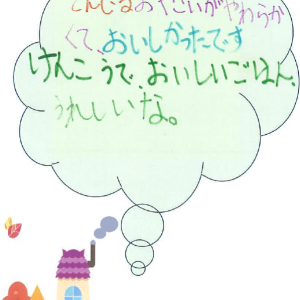 とんじるおやさいがやわらか
くて、おいしかったです
けんこうで、おいしいごはん、
うれしいな。